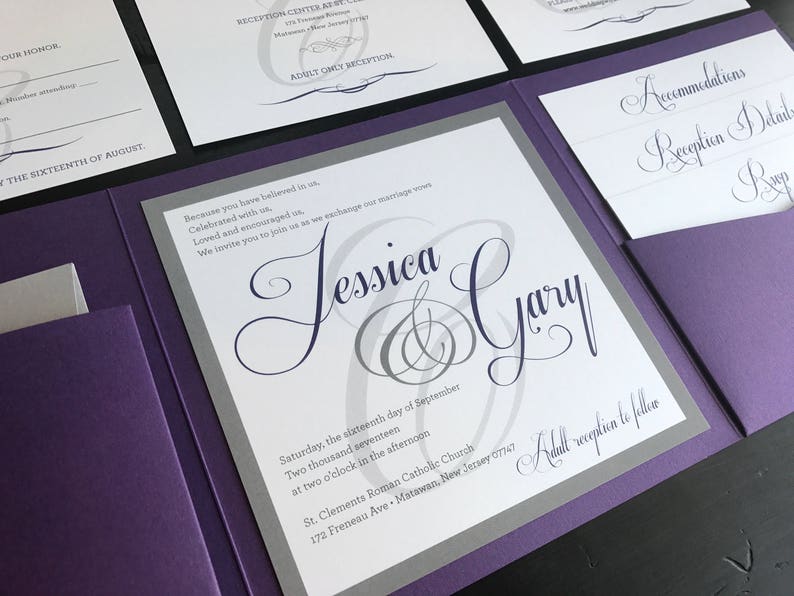 YOUR HONOR.
Number attending:
THE SIXTEENTH OF AUGUST.
RECEPTION CENTER AT ST.
172 Freneau Avenue
Matawan • New Jersey 07747
ADULT ONLY RECEPTION.
Accommodations
Reception Details
Rsvp
Because you have believed in us,
Celebrated with us,
Loved and encouraged us,
We invite you to join us as we exchange our marriage vows
Jessica
&
Gary
C
Saturday, the sixteenth day of September
Two thousand seventeen
at two o'clock in the afternoon
St. Clements Roman Catholic Church
172 Freneau Ave • Matawan, New Jersey 07747
Adult reception to follow